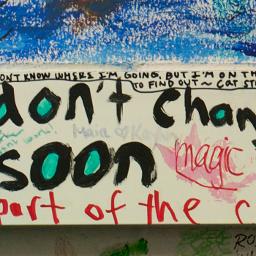 ONT KNOW WHERE I'M GOING, BUT I'M ON TH
TO FIND OUT ~ CAT ST
don't chan
soon
magic
part of the